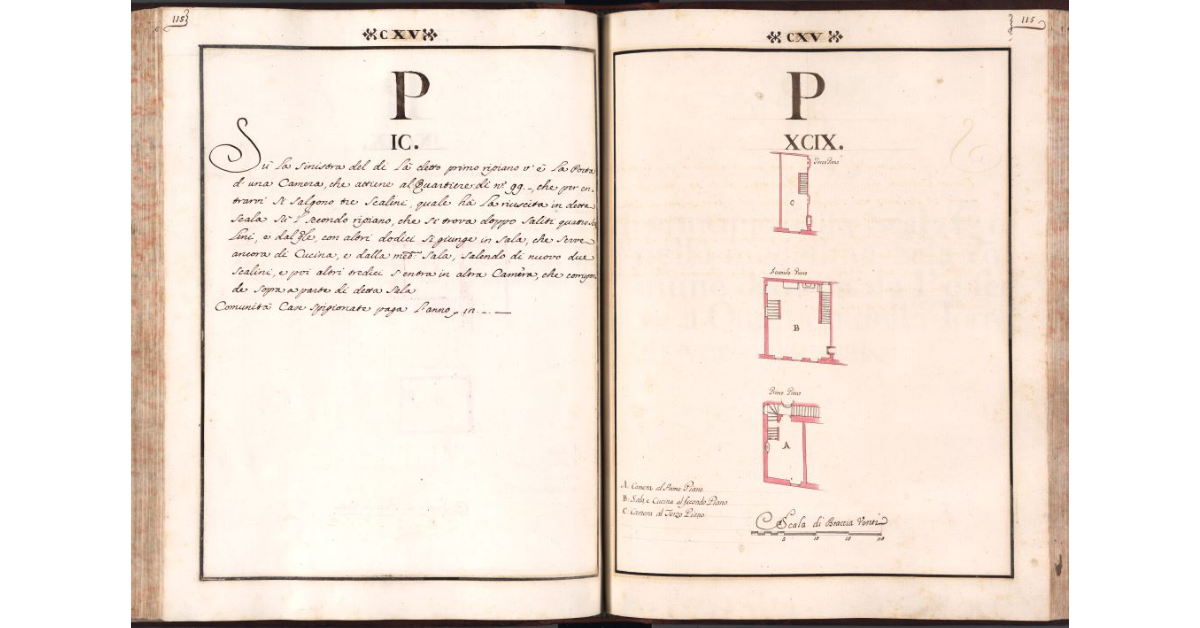 115
CXV
P
IC.
Sù la sinistra del di là detto primo ripiano v'è la Porta
d'una Camera, che attiene al Quartiere di n.º 99., che per en-
trarvi si salgono tre Scalini, quale hà la riuscita in detta
Scala sù 'l secondo ripiano, che si trova doppo saliti quattro Sca
lini, e dal qle, con altri dodici si giunge in Sala, che serve
ancora di Cucina, e dalla med.ª Sala, salendo di nuovo due
Scalini, e poi altri tredici s'entra in altra Camera, che corrispon
de sopra a parte di detta Sala
Comunità Case spigionate paga l'anno
115
CXV
P
XCIX.
Terzo Piano
C
Secondo Piano
B
Primo Piano
A
A. Camera al Primo Piano
B. Sala e Cucina al secondo Piano
C. Camera al Terzo Piano
Scala di Braccia Venti
5 10 20